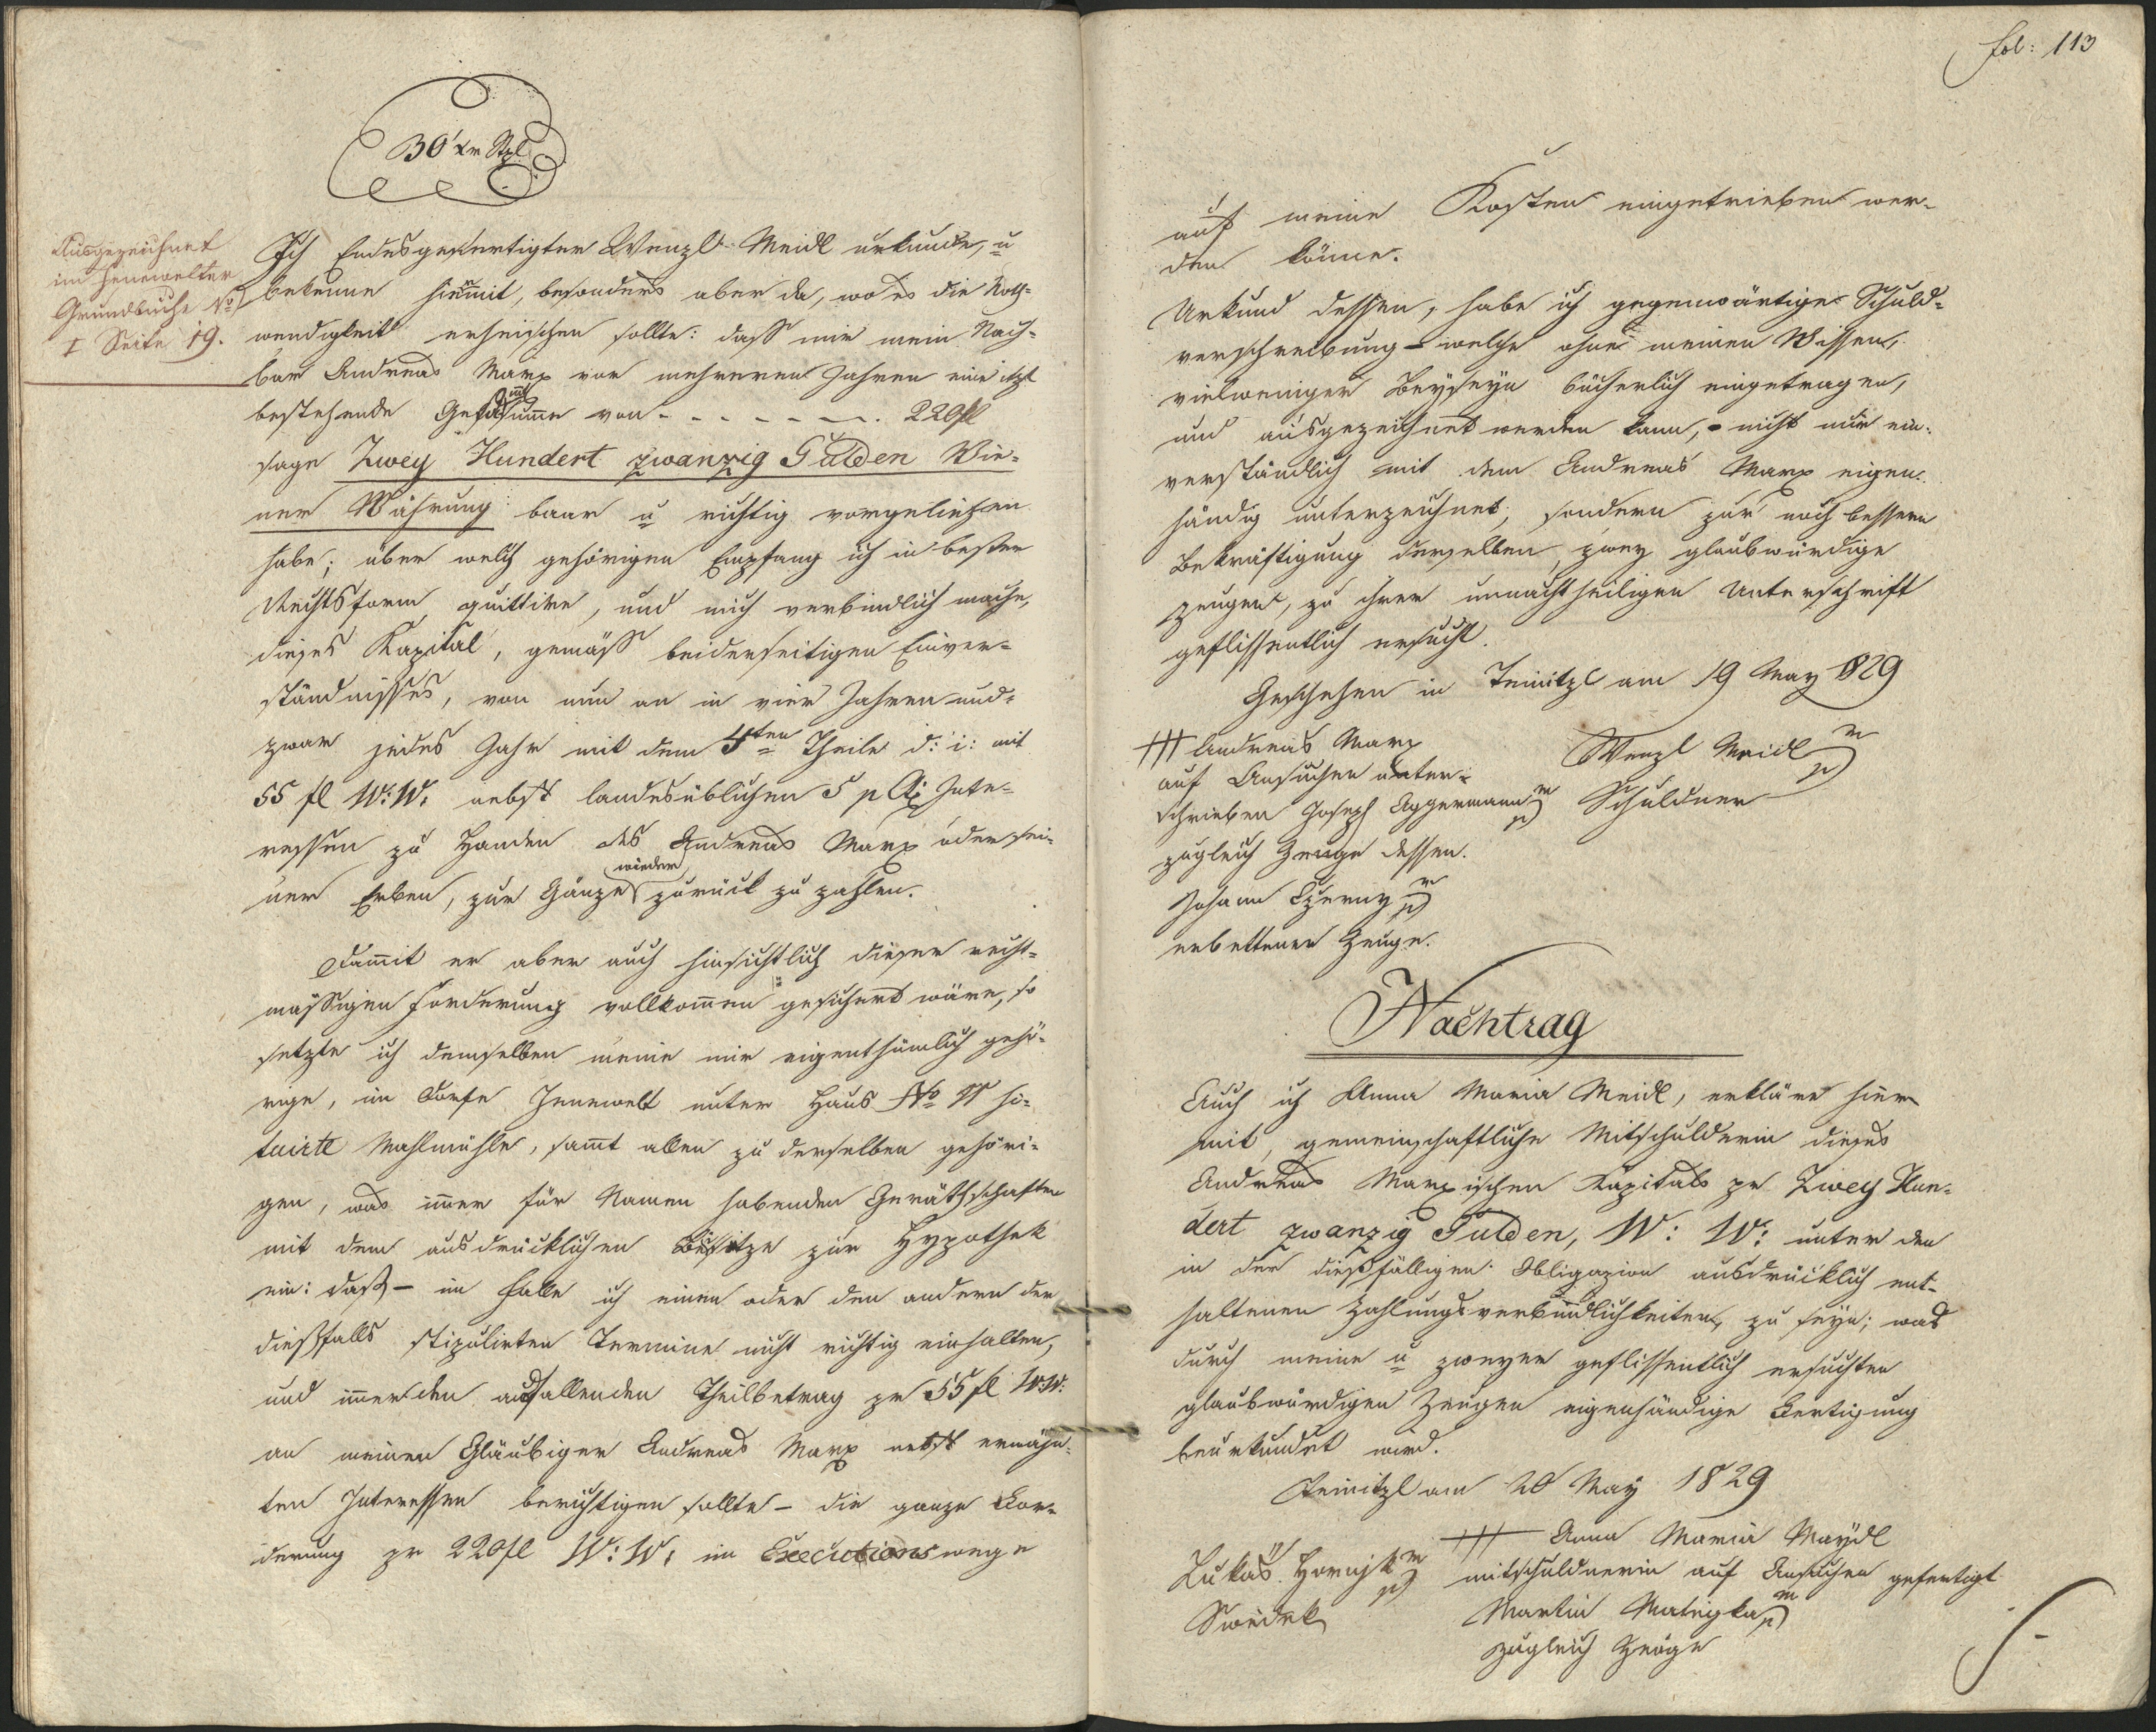 30 kr Stpl
Ausgezeichnet
im Jenewelter
Grundbuche No
I Seite 19.
Ich Endesgefertigter Wenzl Meidl urkunde, u
bekenne hiemit, besonders aber da, wo es die Noth-
wendigkeit erheischen sollte: daß mir mein Nach-
bar Andreas Marx vor mehreren Jahren eine itzt
bestehende Gesammtsumme von - - - - - - . 220 fl
sage Zwey Hundert zwanzig Gulden Wie-
ner Währung baar u richtig vorgeliehen
habe; über welch gehörigen Empfang ich in bester
Rechtsform quittire, und mich verbindlich mache,
dieses Kapital, gemäß beiderseitigen Einver-
ständnisses, von nun an in vier Jahren und-
zwar jedes Jahr mit dem 4ten Theile d: i: mit
55 fl W: W: nebst landesüblichen 5 p Ct Inte-
ressen zu Handen des Andreas Marx oder sei-
ner Erben, zur Gänze wieder zurück zu zahlen.
Damit er aber auch hinsichtlich dieser recht-
mässigen Forderung vollkommen gesichert wäre, so
setzte ich demselben meine mir eigenthümlich gehö-
rige, im Dorfe Jenewelt unter Haus No 11 si-
tuirte Mahlmühle, sammt allen zu derselben gehöri-
gen, was immer für Namen habenden Geräthschaften
mit dem ausdrücklichen Beisatze zur Hypothek
ein: daß - im Falle ich einen oder den andern der
dießfalls stipulirten Termine nicht richtig einhalten,
und immer den ausfallenden Theilbetrag pr 55 fl W:W:
an meinen Gläubiger Andreas Marx nebst erwähn-
ten Interessen berichtigen sollte - die ganze For-
derung pr 220 fl W: W: im Executionswege
fol: 113
auf meine Kosten eingetrieben wer-
den könne.
Urkund dessen, habe ich gegenwärtige Schuld-
verschreibung - welche ohne meinen Wissen,
vielweniger Beyseyn bücherlich eingetragen,
und ausgezeichnet werden kann, - nicht nur ein-
verständlich mit dem Andreas Marx eigen-
händig unterzeichnet, sondern zur noch bessern
Bekräftigung derselben, zwey glaubwürdige
Zeugen, zu ihrer unnachtheiligen Unterschrift
geflissentlich ersucht.
Geschehen in Teinitzl am 19 May 829
+++ Andreas Marx
auf Ansuchen unter-
schrieben Joseph Aggermann mp
zugleich Zeuge dessen.
Johann Czerny mp
erbettener Zeuge.
Wenzl Meidl mp
Schuldner
Nachtrag
Auch ich Anna Maria Meidl, erkläre hier
mit, gemeinschaftliche Mitschulderin dieses
Andreas Marxischen Kapitals pr Zwey Hun-
dert zwanzig Gulden, W: W: unter den
in der dießfälligen Obligazion ausdrücklich ent-
haltenen Zahlungsverbindlichkeiten, zu seyn; was
durch meine u zweyer geflissentlich ersuchten
glaubwürdigen Zeugen eigenhändige Fertigung
beurkundet wird.
Teinitzl am 20 May 1829
+++ Anna Maria Maÿdl
mitschuldnerin auf Ansuchen gefertigt
Martin Mateyka mp
zugleich Zeuge
Lukaš mp
Swědek